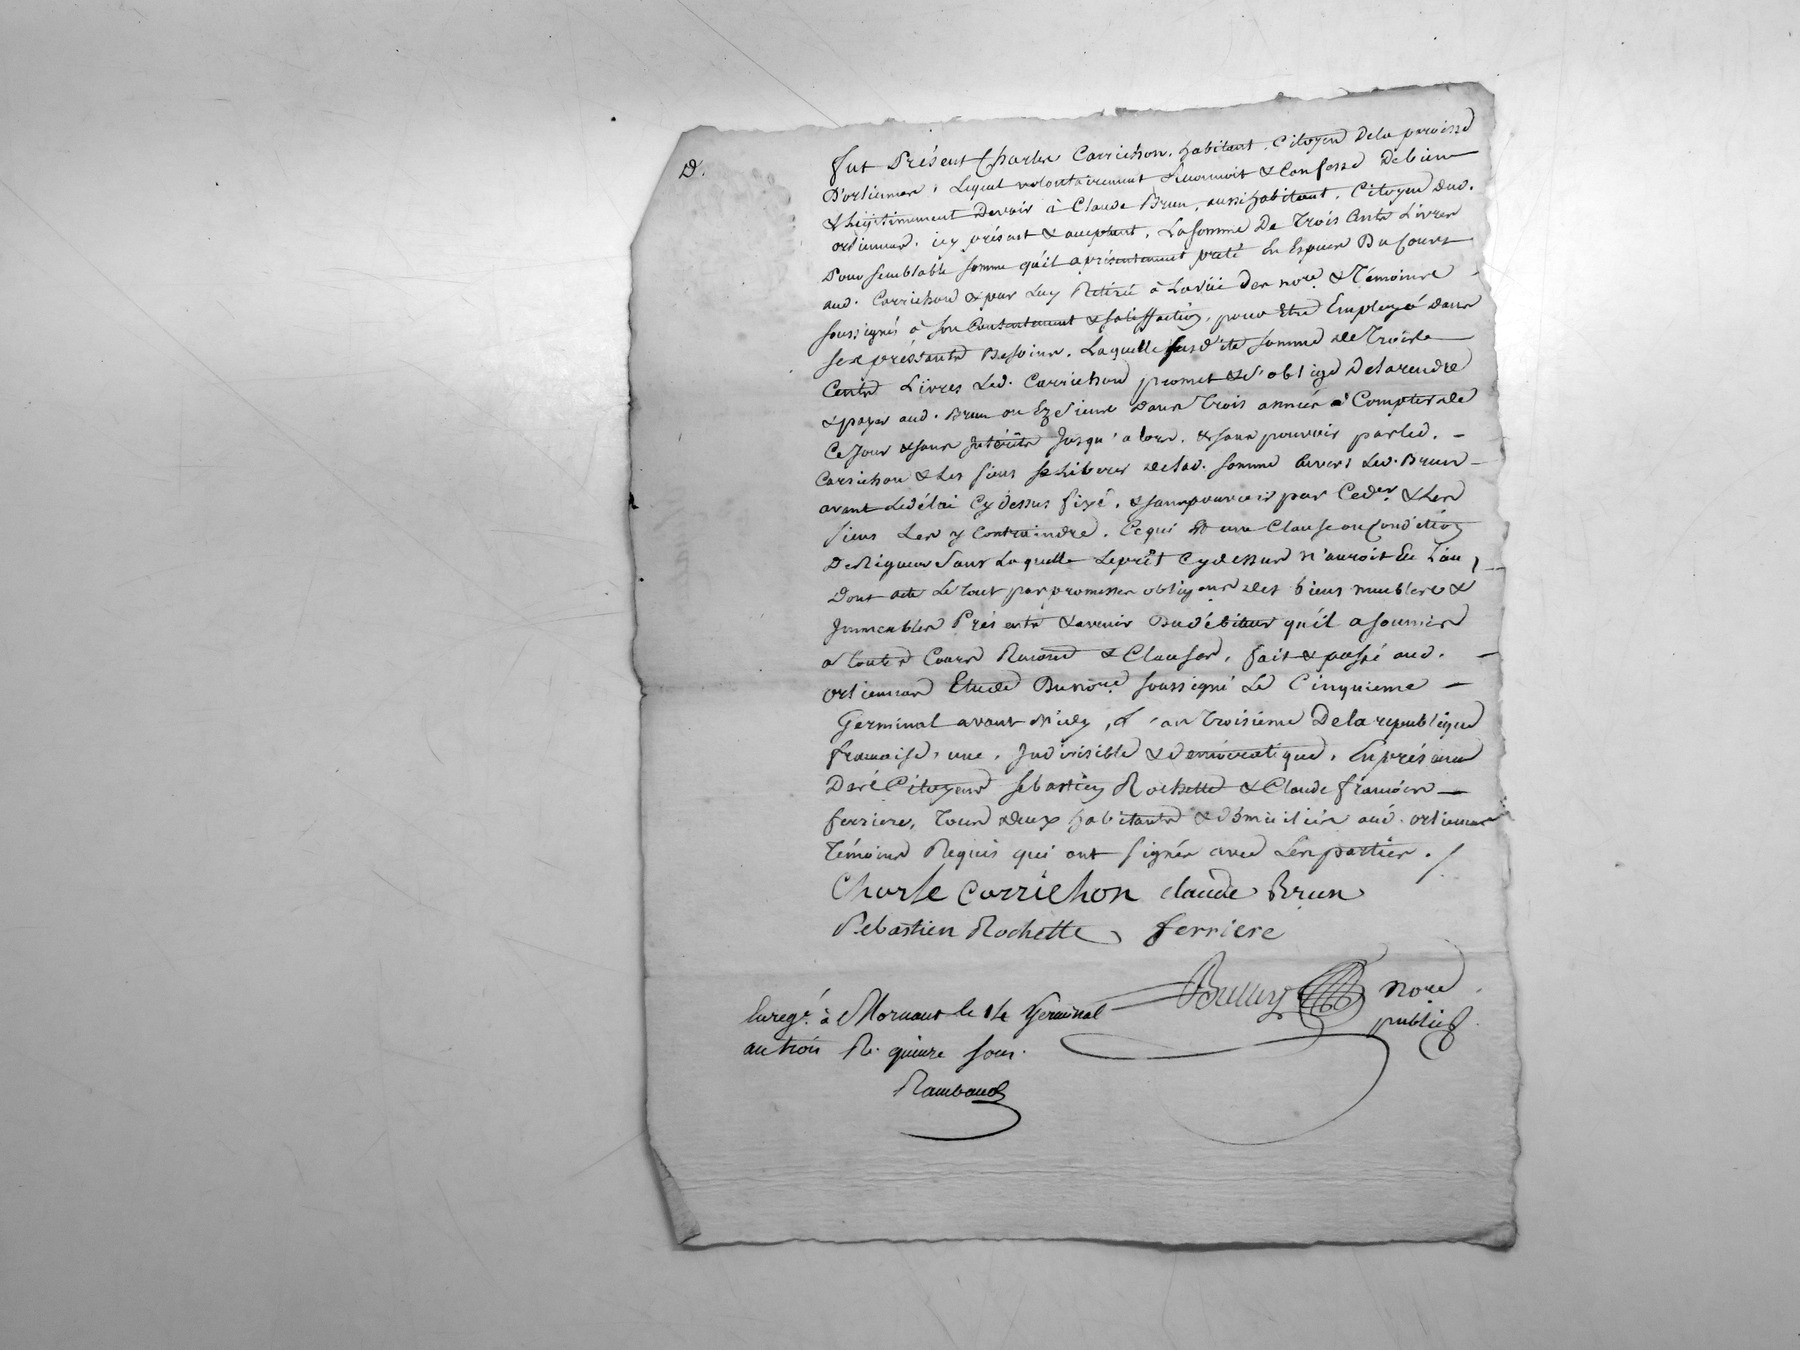 D.
fut Présent Charles Carrichon, habitant, Citoyen Dela paroisse
D'orliennas, Lequel volontairement Reconnoit & Confesse Debien
& Légitimement Devoir à Claude Brun, aussi habitant, Citoyen dud.
orliennas, icy présent & acceptant, La somme De Trois Cents Livres
Pour semblable somme qu'il a présentement preté En Espèces Du Cours
aud. Carrichon & par Luy Retiré à La vüe des nore. & Témoins
soussignés à son Contentement & satisfaction, pour Etre Employé dans
ses préssants Besoins. Laquelle susd'ite somme de Trois
Cents Livres Led. Carrichon promet & s'oblige De la rendre
& payer aud. Brun ou Ez Siens Dans Trois années à Compter de
Ce Jour & sans Intérêts Jusqu'alors, & sans pouvoir par led. -
Carrichon & Les siens se Liberer delad. somme Envers Led. Brun -
avant Le délai Cy dessus fixé, & sans pouvoir par Ceder & Les
siens Les y Contraindre. Ce qui Est une Clause ou Condition
De Rigueur Sans Laquelle Le prêt Cy dessus n'auroit Eu Lieu,
Dont acte Le tout par promesses obligons des biens meubles &
Immeubles Présents & avenir Du débiteur qu'il a soumis
a toutes Cours Renond & Clauses, fait & passé aud. -
orliennas Etude Du nore. soussigné Le Cinquieme -
Germinal avant midy, L'an Troisieme De la republique
francaise, une, Indivisible & démocratique, En présence
Des Citoyens Sebastien Rochette & Claude francois -
ferriere, Tous deux habitants & domiciliés aud. orliennas
Témoins Requis qui ont signés avec Les parties. /
Charle Carrichon Claude Brun
Sebastien Rochette ferriere
nore
public
Enregé. à Mornant le 14 Germinal
an trois R. quinze sous.
Rambaud